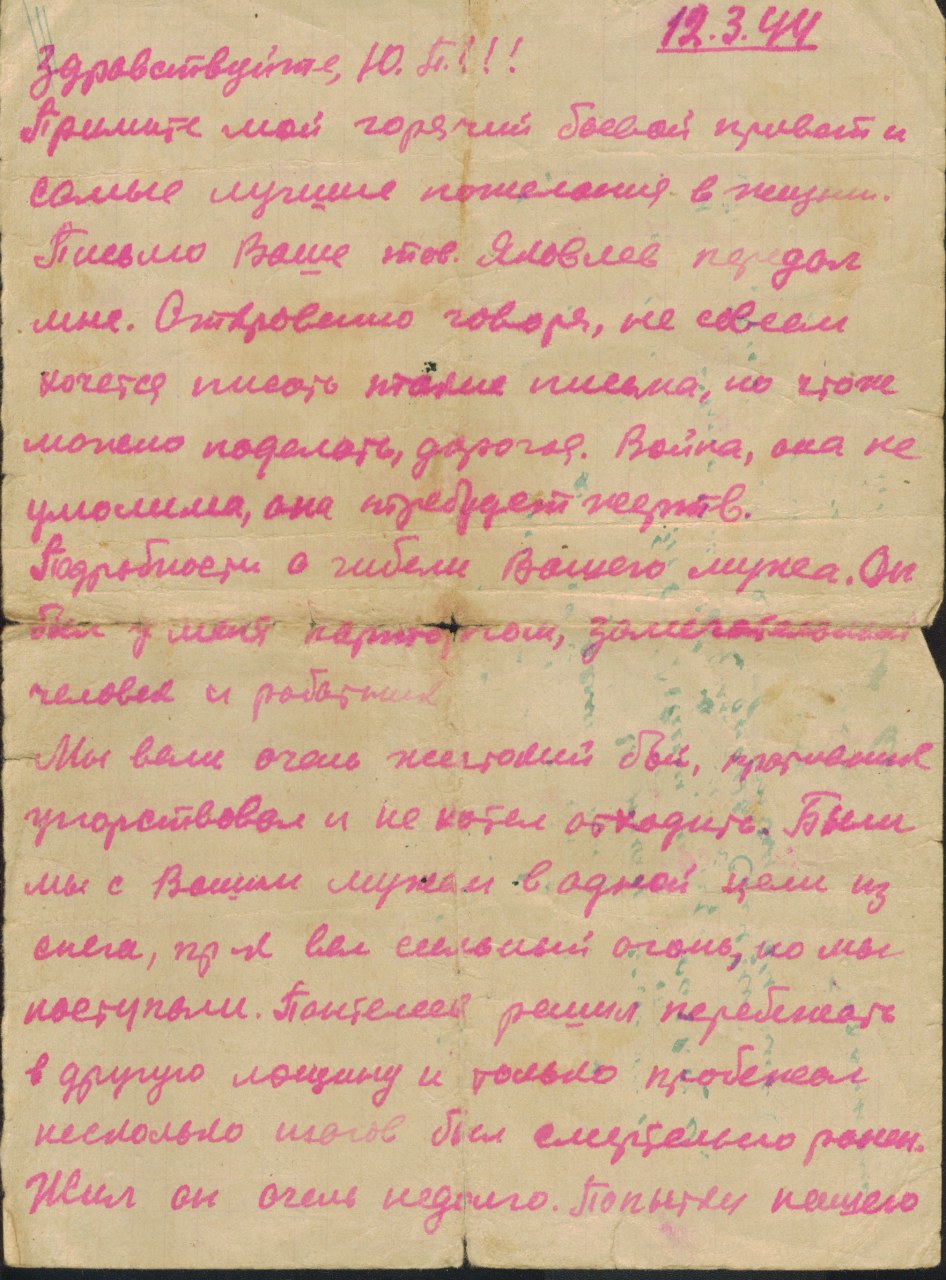 12.3.44
Здравствуйте, Ю. П.!!!
Примите мой горячий боевой привет и
самые лучшие пожелания в жизни.
Письмо Ваше тов. Яковлев передал
мне. Откровенно говоря, не совсем
хочется писать такие письма, но что же
можно поделать, дорогая. Война, она не
умолима, она требует жертв.
Подробности о гибели Вашего мужа. Он
был у меня парторгом, замечательный
человек и работник
Мы вели очень жестокий бой, противник
упорствовал и не хотел отходить. Были
мы с Вашим мужем в одной цели из
снега, пр-к вел сильный огонь, но мы
наступали. Пантелеев решил перебежать
в другую лощину и только пробежал
несколько шагов был смертельно ранен.
Жил он очень недолго. Попытки нашего